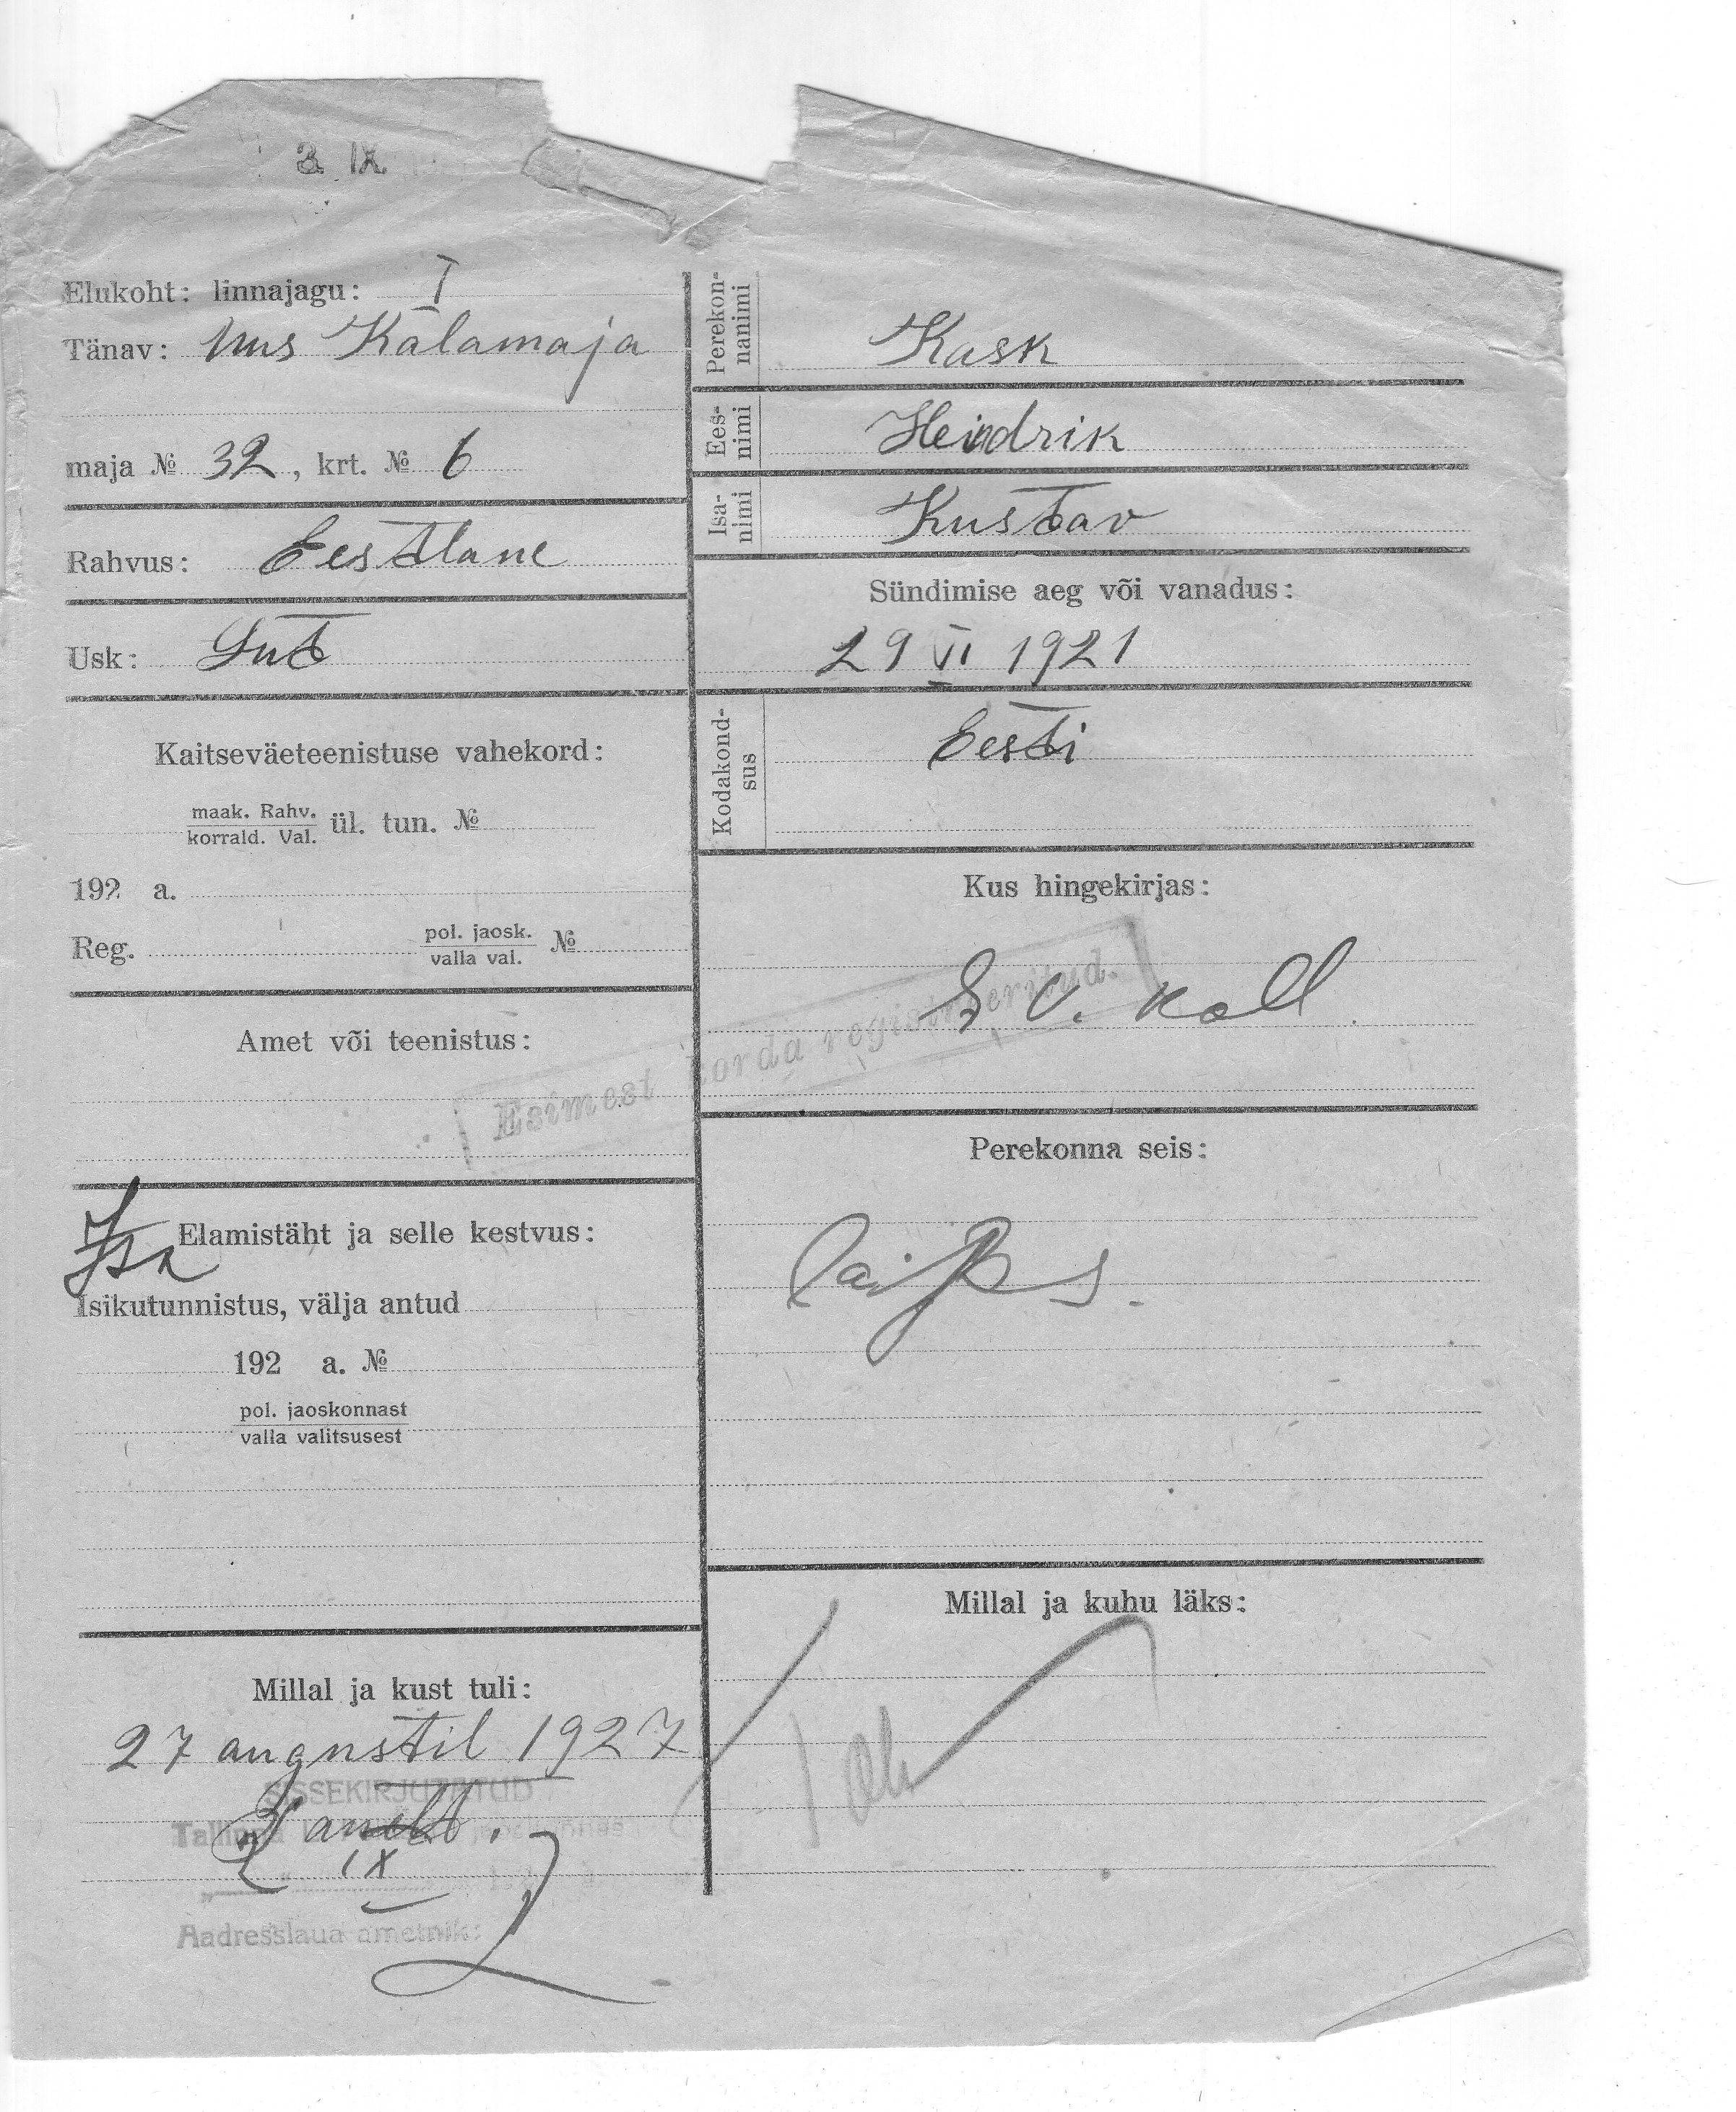 3. IX
Elukoht: linnajagu: I
Tänav: Uus Kalamaja
maja № 32, krt. № 6
Rahvus: Eestlane
Usk: Lut
Kaitseväeteenistuse vahekord:
maak. Rahv.
korrald. Val. ül. tun. №
192 a.
Reg. pol. jaosk.
valla val. №
Amet või teenistus:
Elamistäht ja selle kestvus:
Isa
Isikutunnistus, välja antud
192 a. №
pol. jaoskonnast
valla valitsusest
Millal ja kust tuli:
27 augustil 1927
SISSEKIRJUTATUD
Tallinna
IX
Aadresslaua ametnik:
Perekonnanimi Kask
Eesnimi Hendrik
Isanimi Kustav
Sündimise aeg või vanadus:
29 VI 1921
Kodakondsus Eesti
Kus hingekirjas:
Esimest korda registreeritud.
Perekonna seis:
laps.
Millal ja kuhu läks: